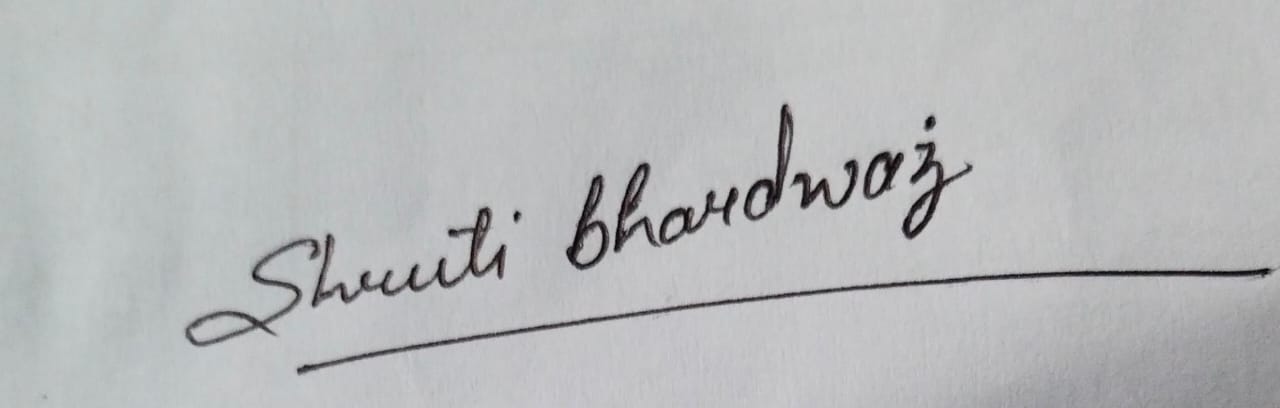 Shruti bhardwaj